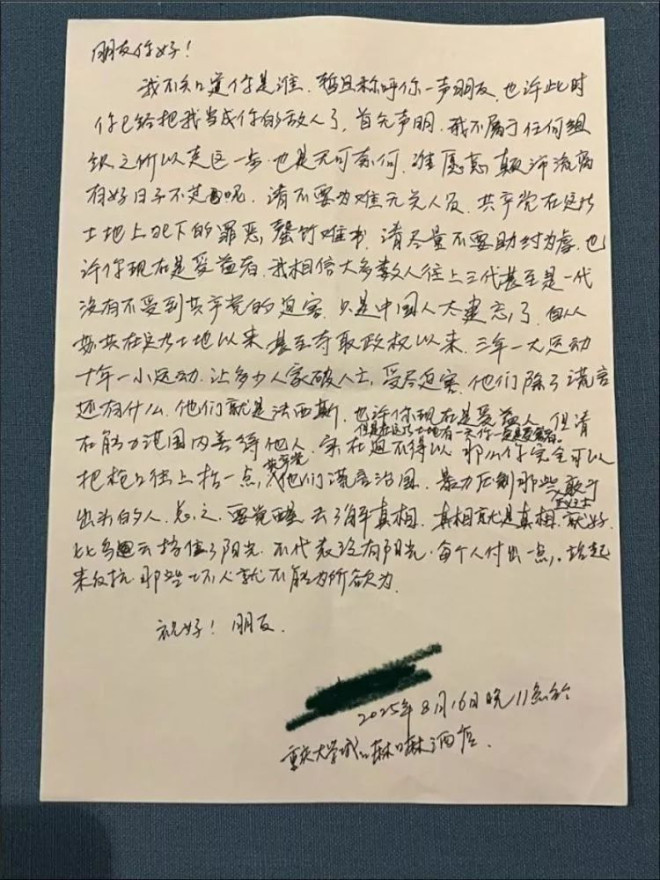 朋友你好！
我不知道你是谁．暂且称呼你一声朋友，也许此时
你已给把我当成你的敌人了，首先声明．我不属于任何组
织之所以走这一步也是无可奈何，谁愿意颠沛流离
有好日子不过呢，请不要为难无关人员，共产党在这片
土地上犯下的罪恶，罄竹难书，请尽量不要助纣为虐，也
许你现在是受益者，我相信大多数人往上三代甚至是一代
没有不受到共产党的迫害，只是中国人太健忘了，自从
苏共在这片土地以来，甚至夺取政权以来，三年一大运动
十年一小运动，让多少人家破人亡，受尽迫害，他们除了谎言
还有什么，他们就是法西斯，也许你现在是受益人，但请
但是在这片土地有一天你一定是受害者。
在能力范围内善待他人，实在迫不得以，那么你完全可以
共产党
把枪口往上抬一点，他们谎言治国，暴力压制那些敢于
出头的人，总之，要觉醒，去了解真相，真相就是真相，就好
比乌云挡住了阳光，不代表没有阳光，每个人付出一点，站起
来反抗，那些坏人就不能为所欲为．
祝好！朋友．
2025年8月16日晚11点于
重庆大学城
酒店．